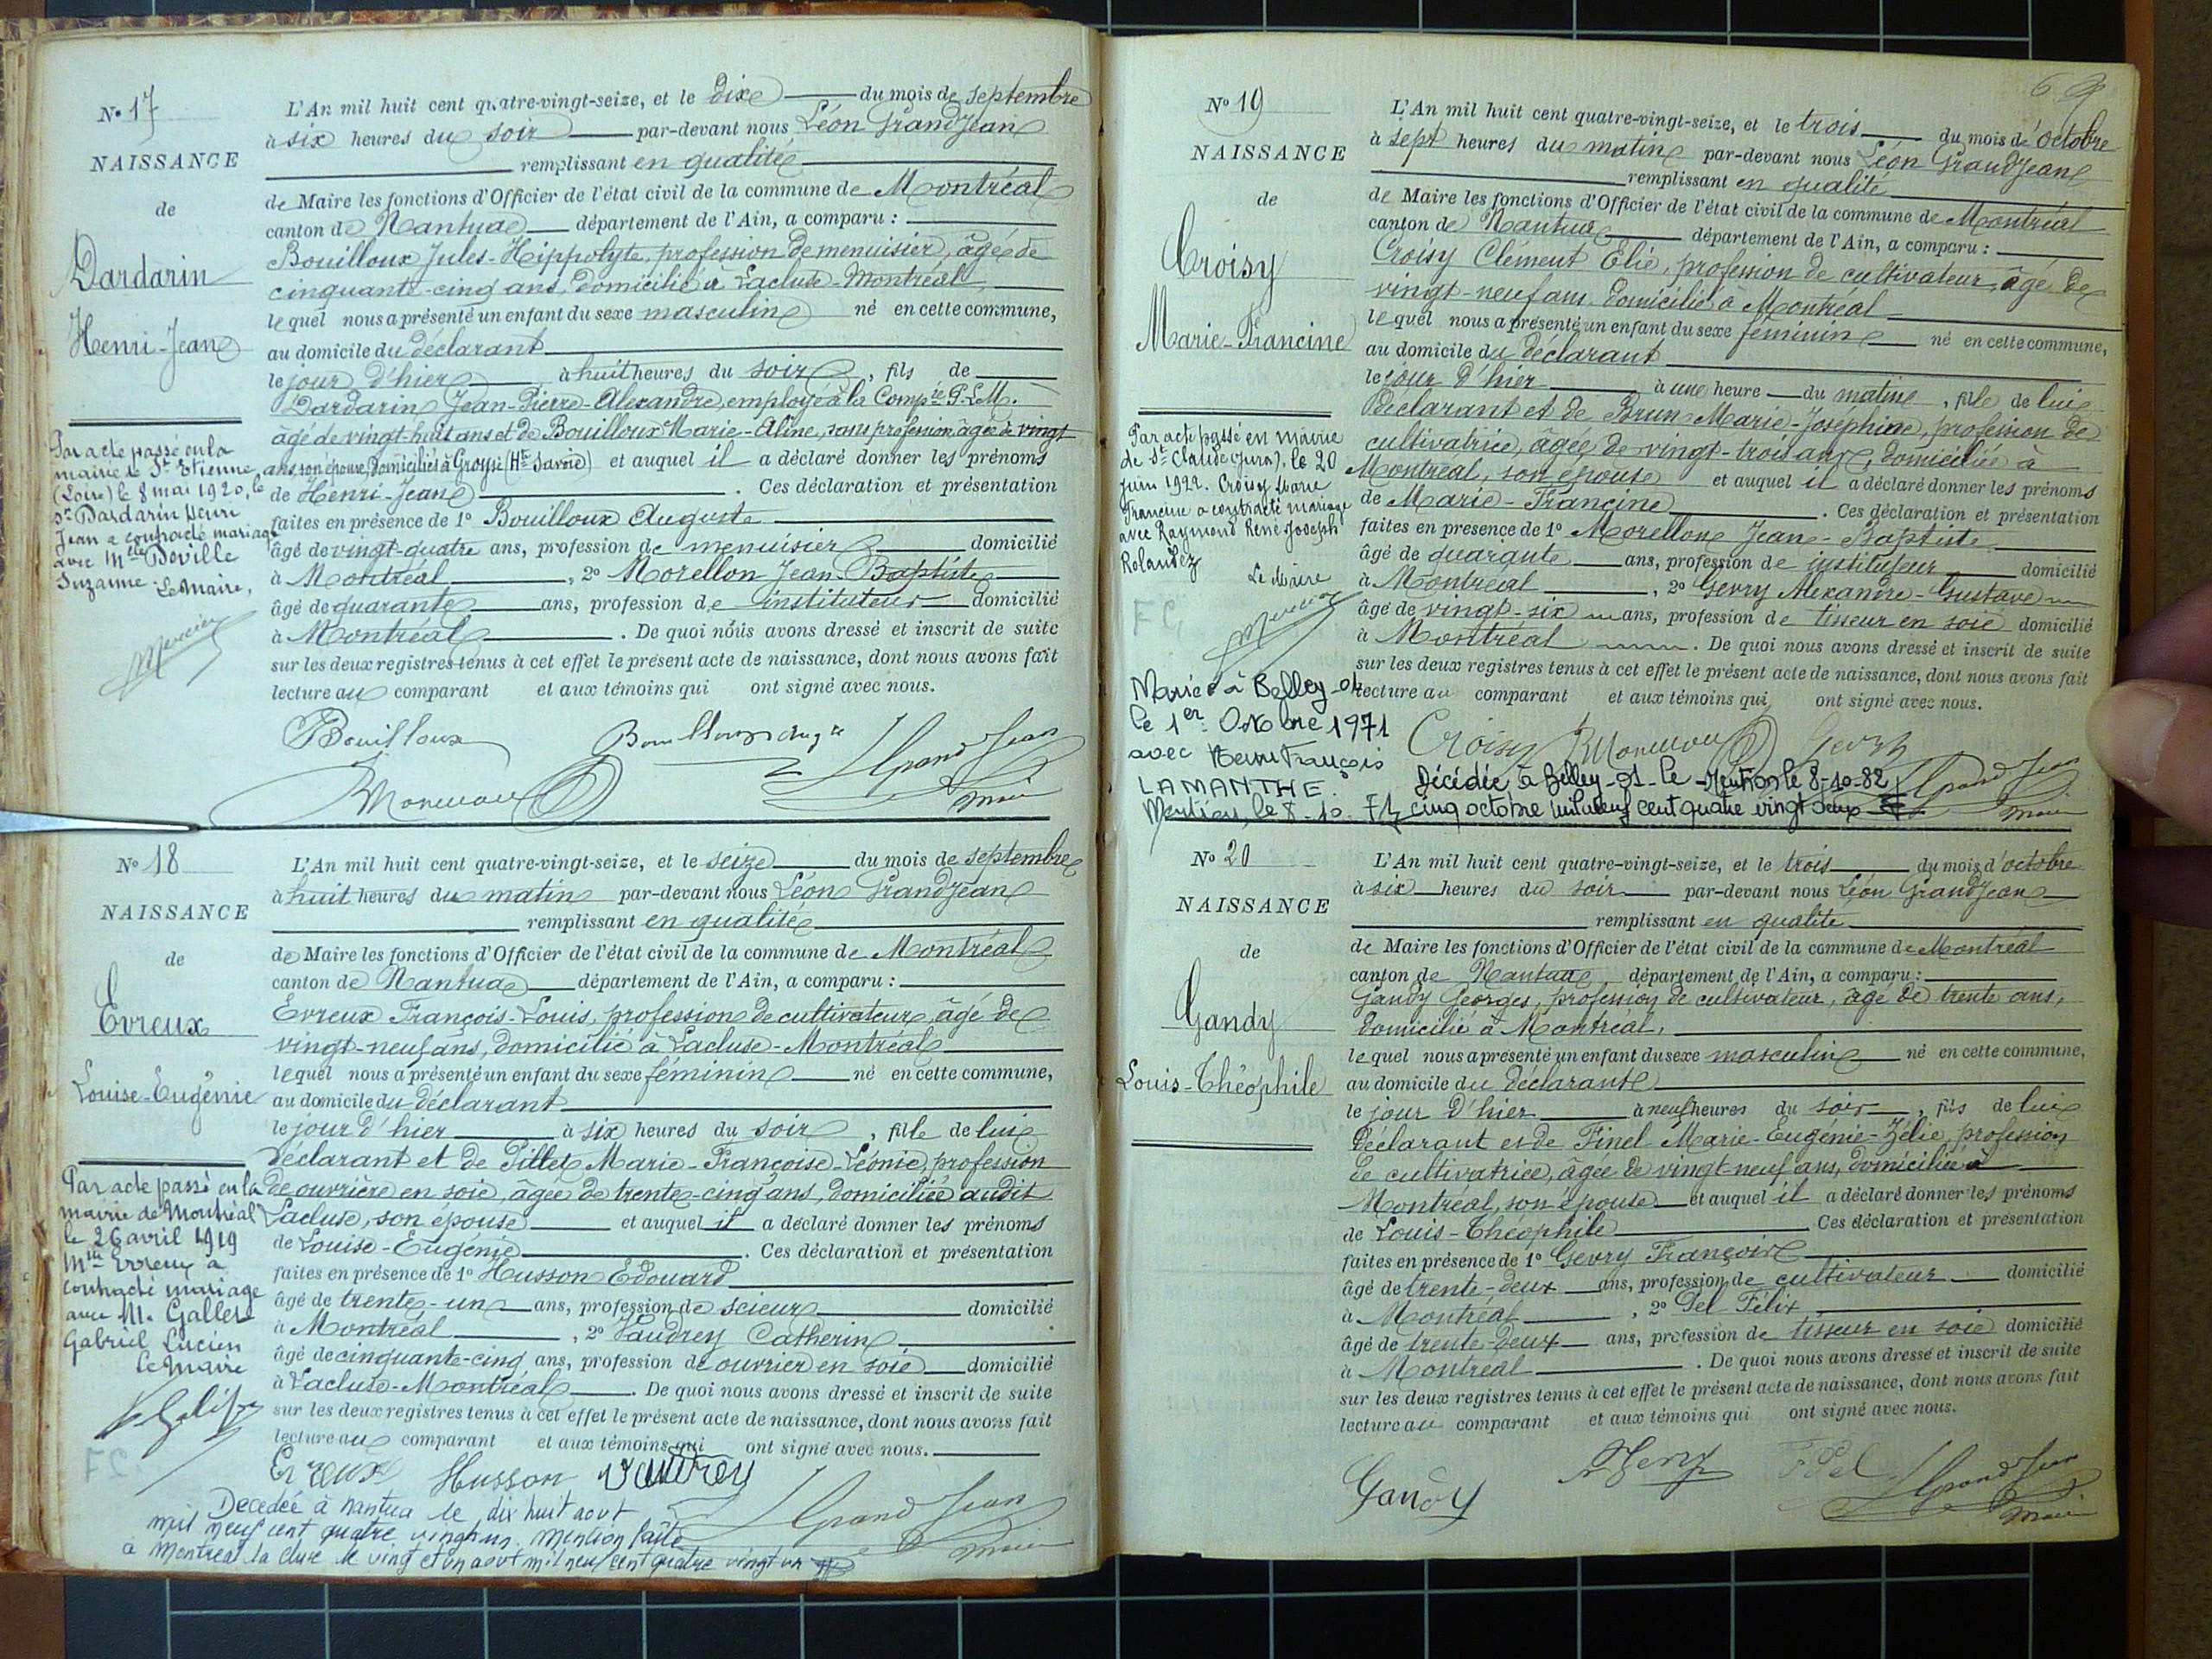 N° 17
NAISSANCE
de
Dardarin
Henri-Jean
Par acte passé en la
mairie de St Etienne,
(Loire) le 8 mai 1920, le
sr Dardarin Henri
Jean a contracté mariage
avec Melle Deville
Suzanne. Le Maire,
Mercier
L'An mil huit cent quatre-vingt-seize, et le dix du mois de septembre
à six heures du soir par-devant nous Léon Grandjean
remplissant en qualité
de Maire les fonctions d'Officier de l'état civil de la commune de Montréal
canton de Nantua département de l'Ain, a comparu :
Bouilloux Jules-Hippolyte, profession de menuisier, âgé de
cinquante-cinq ans, domicilié à Lacluse-Montréal,
lequel nous a présenté un enfant du sexe masculin né en cette commune,
au domicile du déclarant
le jour d'hier à huit heures du soir, fils de
Dardarin Jean-Pierre-Alexandre, employé à la Compie P.L.M.
âgé de vingt-huit ans et de Bouilloux Marie-Aline, sans profession, âgée de vingt
ans, son épouse, domiciliés à (Hte Savoie) et auquel il a déclaré donner les prénoms
de Henri-Jean. Ces déclaration et présentation
faites en présence de 1° Bouilloux Auguste
âgé de vingt-quatre ans, profession de menuisier domicilié
à Montréal, 2° Morellon Jean-Baptiste
âgé de quarante ans, profession de instituteur domicilié
à Montréal. De quoi nous avons dressé et inscrit de suite
sur les deux registres tenus à cet effet le présent acte de naissance, dont nous avons fait
lecture au comparant et aux témoins qui ont signé avec nous.
Bouilloux Bouilloux Augte L Grand Jean
Morellon maire
N° 18
NAISSANCE
de
Evreux
Louise-Eugénie
Par acte passé en la
mairie de Montréal
le 26 avril 1919
Mlle Evreux a
contracté mariage
avec M. Gallet
Gabriel Lucien
le Maire
L'An mil huit cent quatre-vingt-seize, et le seize du mois de septembre
à huit heures du matin par-devant nous Léon Grandjean
remplissant en qualité
de Maire les fonctions d'Officier de l'état civil de la commune de Montréal
canton de Nantua département de l'Ain, a comparu :
Evreux François-Louis, profession de cultivateur, âgé de
vingt-neuf ans, domicilié à Lacluse-Montréal
lequel nous a présenté un enfant du sexe féminin né en cette commune,
au domicile du déclarant
le jour d'hier à six heures du soir, fille de lui
déclarant et de Pillet Marie-Françoise-Léonie, profession
de ouvrière en soie, âgée de trente-cinq ans, domiciliée audit
Lacluse, son épouse et auquel il a déclaré donner les prénoms
de Louise-Eugénie. Ces déclaration et présentation
faites en présence de 1° Husson Edouard
âgé de trente-un ans, profession de scieur domicilié
à Montréal, 2° Vaudrey Catherin
âgé de cinquante-cinq ans, profession de ouvrier en soie domicilié
à Lacluse-Montréal. De quoi nous avons dressé et inscrit de suite
sur les deux registres tenus à cet effet le présent acte de naissance, dont nous avons fait
lecture au comparant et aux témoins qui ont signé avec nous.
Evreux Husson Vaudrey L Grand Jean
maire
Decedée à Nantua le dix huit aout
mil neuf cent quatre vingt un. Mention faite
à Montreal la cluse le vingt et un aout mil neuf cent quatre vingt un
69
N° 19
NAISSANCE
de
Croisy
Marie-Francine
Par acte passé en mairie
de St Claude (Jura), le 20
Juin 1922. Croisy Marie
Francine a contracté mariage
avec Raymond René Joseph
Rolandez
Le Maire
Mercier
Mariée à Belley-01
le 1er Octobre 1971
avec François
LAMANTHE.
Mention, le 8-10-71
L'An mil huit cent quatre-vingt-seize, et le trois du mois d'octobre
à sept heures du matin par-devant nous Léon Grandjean
remplissant en qualité
de Maire les fonctions d'Officier de l'état civil de la commune de Montréal
canton de Nantua département de l'Ain, a comparu :
Croisy Clément Elie, profession de cultivateur, âgé de
vingt-neuf ans, domicilié à Montréal
lequel nous a présenté un enfant du sexe féminin né en cette commune,
au domicile du déclarant
le jour d'hier à une heure du matin, fille de lui
déclarant et de Brun Marie-Joséphine, profession de
cultivatrice, âgée de vingt-trois ans, domiciliée à
Montréal, son épouse et auquel il a déclaré donner les prénoms
de Marie-Francine. Ces déclaration et présentation
faites en présence de 1° Morellon Jean-Baptiste
âgé de quarante ans, profession de instituteur domicilié
à Montréal, 2° Gevry Alexandre-Gustave
âgé de vingt-six ans, profession de tisseur en soie domicilié
à Montréal. De quoi nous avons dressé et inscrit de suite
sur les deux registres tenus à cet effet le présent acte de naissance, dont nous avons fait
lecture au comparant et aux témoins qui ont signé avec nous.
Croisy Morellon Gevry L Grand Jean
maire
Décédée à Belley-01. le Mention le 8-10-82
cinq octobre mil neuf cent quatre vingt deux
N° 20
NAISSANCE
de
Gandy
Louis-Théophile
L'An mil huit cent quatre-vingt-seize, et le trois du mois d'octobre
à six heures du soir par-devant nous Léon Grandjean
remplissant en qualité
de Maire les fonctions d'Officier de l'état civil de la commune de Montréal
canton de Nantua département de l'Ain, a comparu :
Gandy Georges, profession de cultivateur, âgé de trente ans,
domicilié à Montréal,
lequel nous a présenté un enfant du sexe masculin né en cette commune,
au domicile du déclarant
le jour d'hier à neuf heures du soir, fils de lui
déclarant et de Finel Marie-Eugénie-Zélie, profession
de cultivatrice, âgée de vingt-neuf ans, domiciliée à
Montréal, son épouse et auquel il a déclaré donner les prénoms
de Louis-Théophile Ces déclaration et présentation
faites en présence de 1° Gevry François
âgé de trente-deux ans, profession de cultivateur domicilié
à Montréal, 2° Pel Félix
âgé de trente-deux ans, profession de tisseur en soie domicilié
à Montréal. De quoi nous avons dressé et inscrit de suite
sur les deux registres tenus à cet effet le présent acte de naissance, dont nous avons fait
lecture au comparant et aux témoins qui ont signé avec nous.
Gandy F Gevry F Pel L Grand Jean
maire